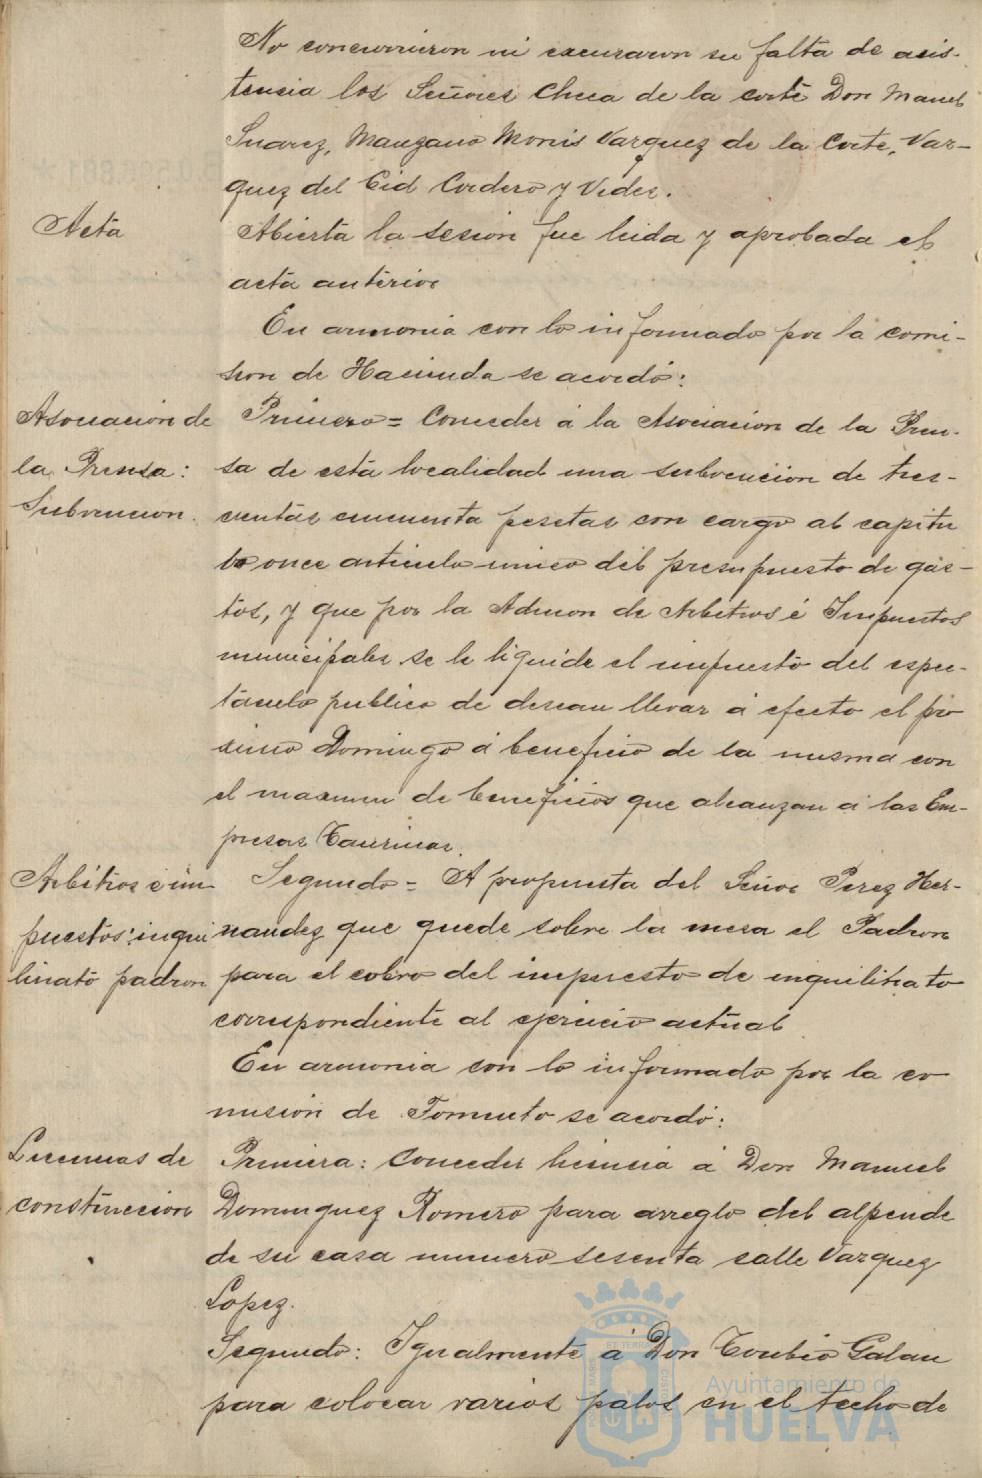 No concurrieron ni excusaron su falta de asis-
tencia los Señores Checa de la Corte Don Manuel
Suarez, Manzano Monis Vazquez de la Corte, Vaz-
quez del Cid Cordero y Vides.
Acta
Abierta la sesion fue leida y aprobada el
acta anterior
En armonia con lo informado por la comi-
sion de Hacienda se acordó:
Asociacion de
la Prensa:
Subvencion.
Primero = Conceder á la Asociacion de la Pren-
sa de esta localidad una subvencion de tres-
cientas cincuenta pesetas con cargo al capitu
lo once articulo unico del presupuesto de gas-
tos, y que por la Admon de Arbitros é Impuestos
municipales se le liquide el impuesto del espec-
táculo publico de desean llevar á efecto el pro
ximo Domingo á beneficio de la misma con
el maximun de beneficios que alcanzan á las Em-
presas Taurinas.
Arbitros é im
puestos: inqui
linato padron
Segundo = A propuesta del Señor Perez Her-
nandez que quede sobre la mesa el Padron
para el cobro del impuesto de inquilinato
correspondiente al ejercicio actual
En armonia con lo informado por la co
mision de Fomento se acordó:
Licencias de
construccion
Primera: Conceder licencia á Don Manuel
Dominguez Romero para arreglo del alpende
de su casa numero sesenta calle Vazquez
Lopez.
Segundo: Igualmente á Don Toribio Galan
para colocar varios palos en el techo de
Ayuntamiento de
HUELVA